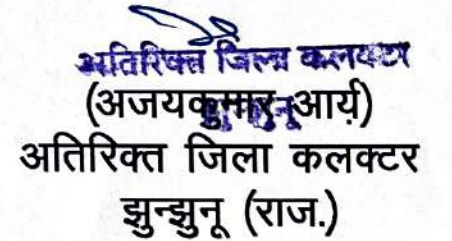 अतिरिक्त जिला कलक्टर
झुन्झुनू
(अजयकुमार आर्य)
अतिरिक्त जिला कलक्टर
झुन्झुनू (राज.)